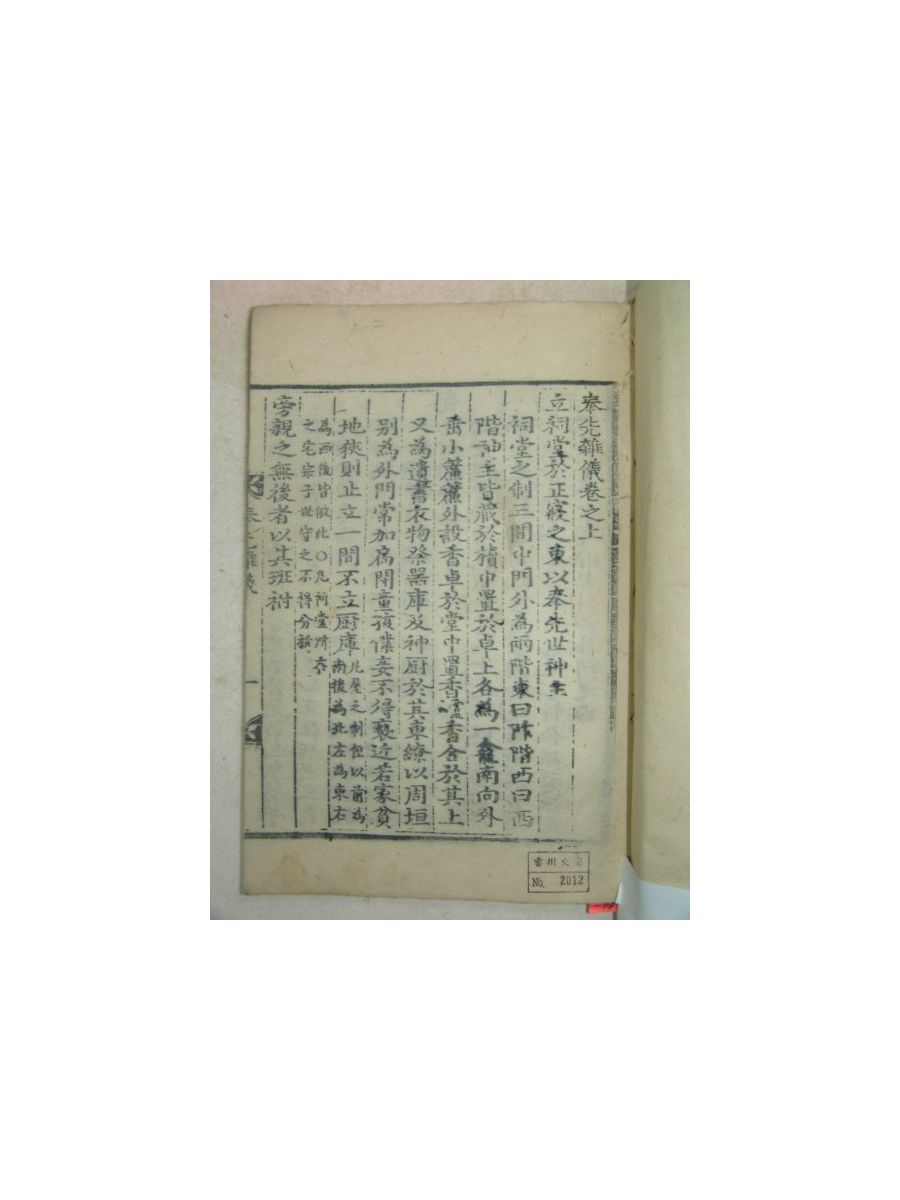 奉先雜儀卷之上
立祠堂於正寢之東以奉先世神主
祠堂之制三間中門外為兩階東曰阼階西曰西
階神主皆藏於櫝中置於卓上各為一龕南向外
垂小簾簾外設香卓於堂中置香爐香合於其上
又為遺書衣物祭器庫及神厨於其東繚以周垣
別為外門常加扃閉童孩僕妾不得褻近若家貧
地狹則止立一間不立厨庫
凡屋之制但以前為
南後為北左為東右
為西後皆倣此○凡祠堂所在
之宅宗子世守之不得分析
旁親之無後者以其班祔
奉先雜儀
一
No. 2012